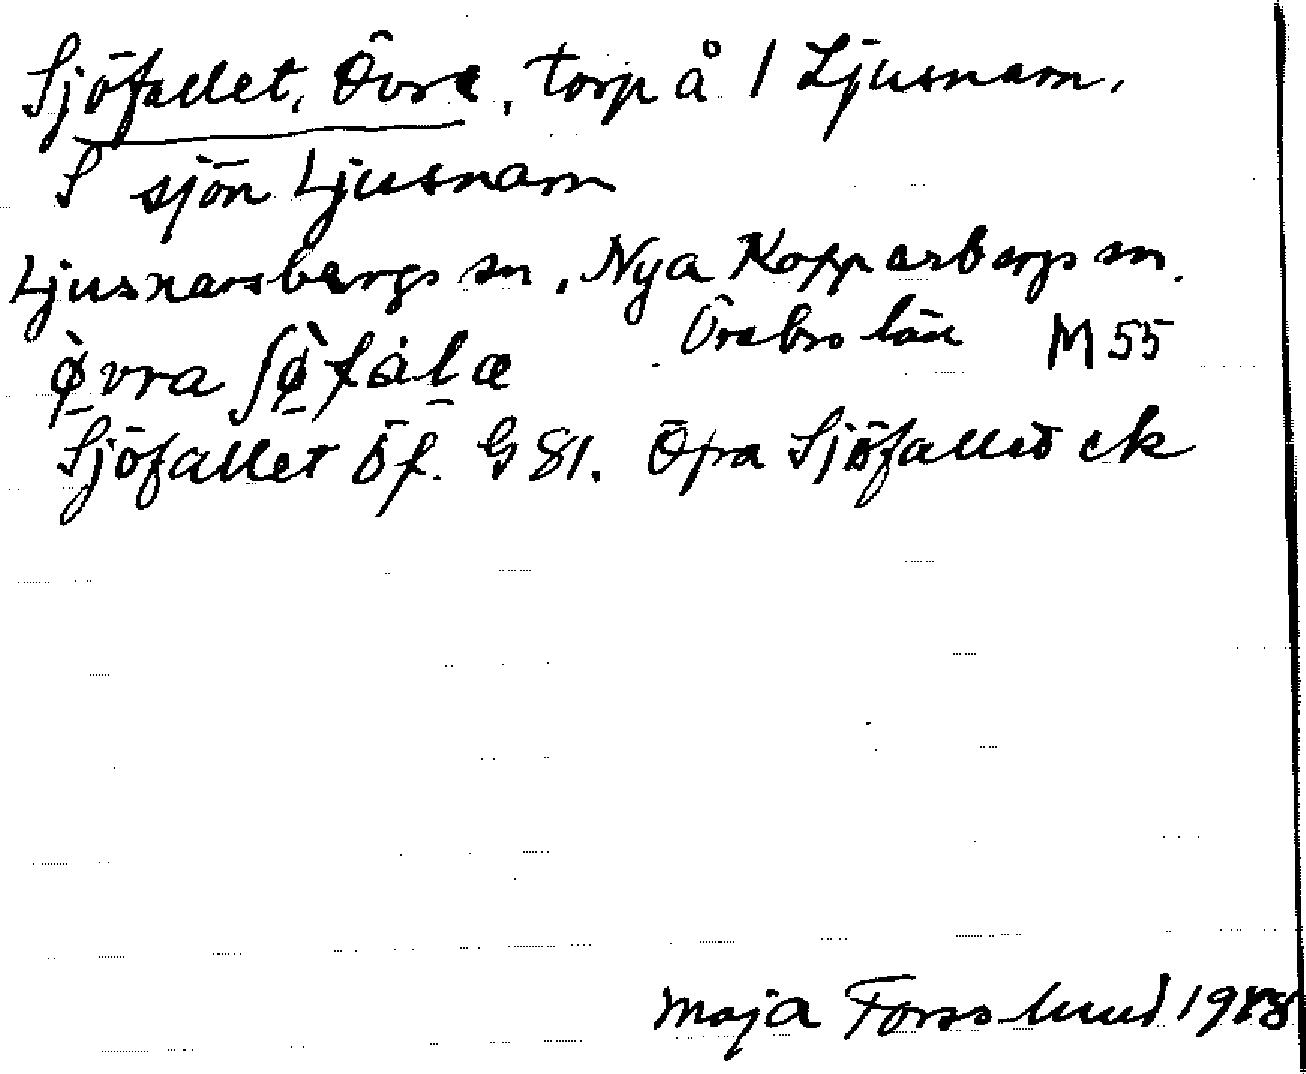 Sjöfallet, Övre, torp å 1 Ljusnarn.
S sjön Ljusnarn
Ljusnarsbergs sn, Nya Kopparbergs sn.
Örebro län M 55
ø̀vra ʃø̀fala
Sjöfallet Öf. G 81. Öfra Sjöfallet ek
Maja Forsslund